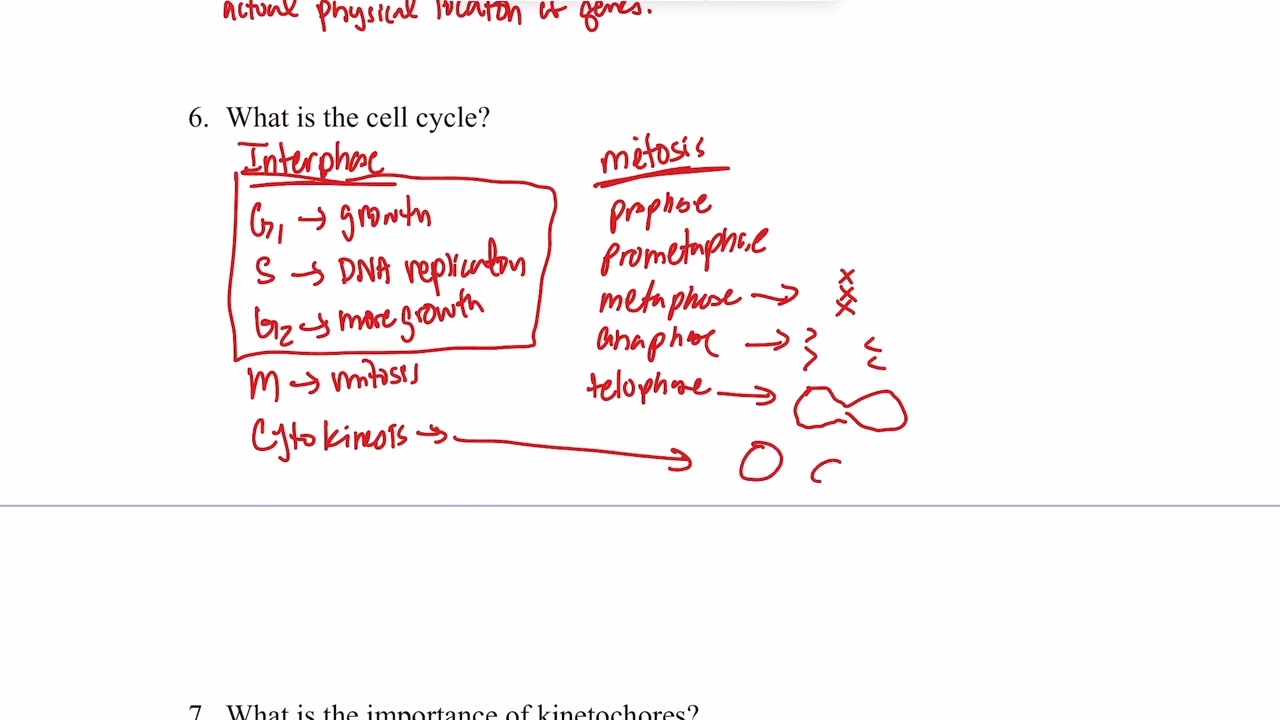 Actual physical location of genes.
6. What is the cell cycle?
Interphase
G1 → growth
S → DNA replication
G2 → more growth
M → mitosis
Cytokinesis →
mitosis
prophase
prometaphase
metaphase →
anaphase →
telophase →
7. What is the importance of kinetochores?